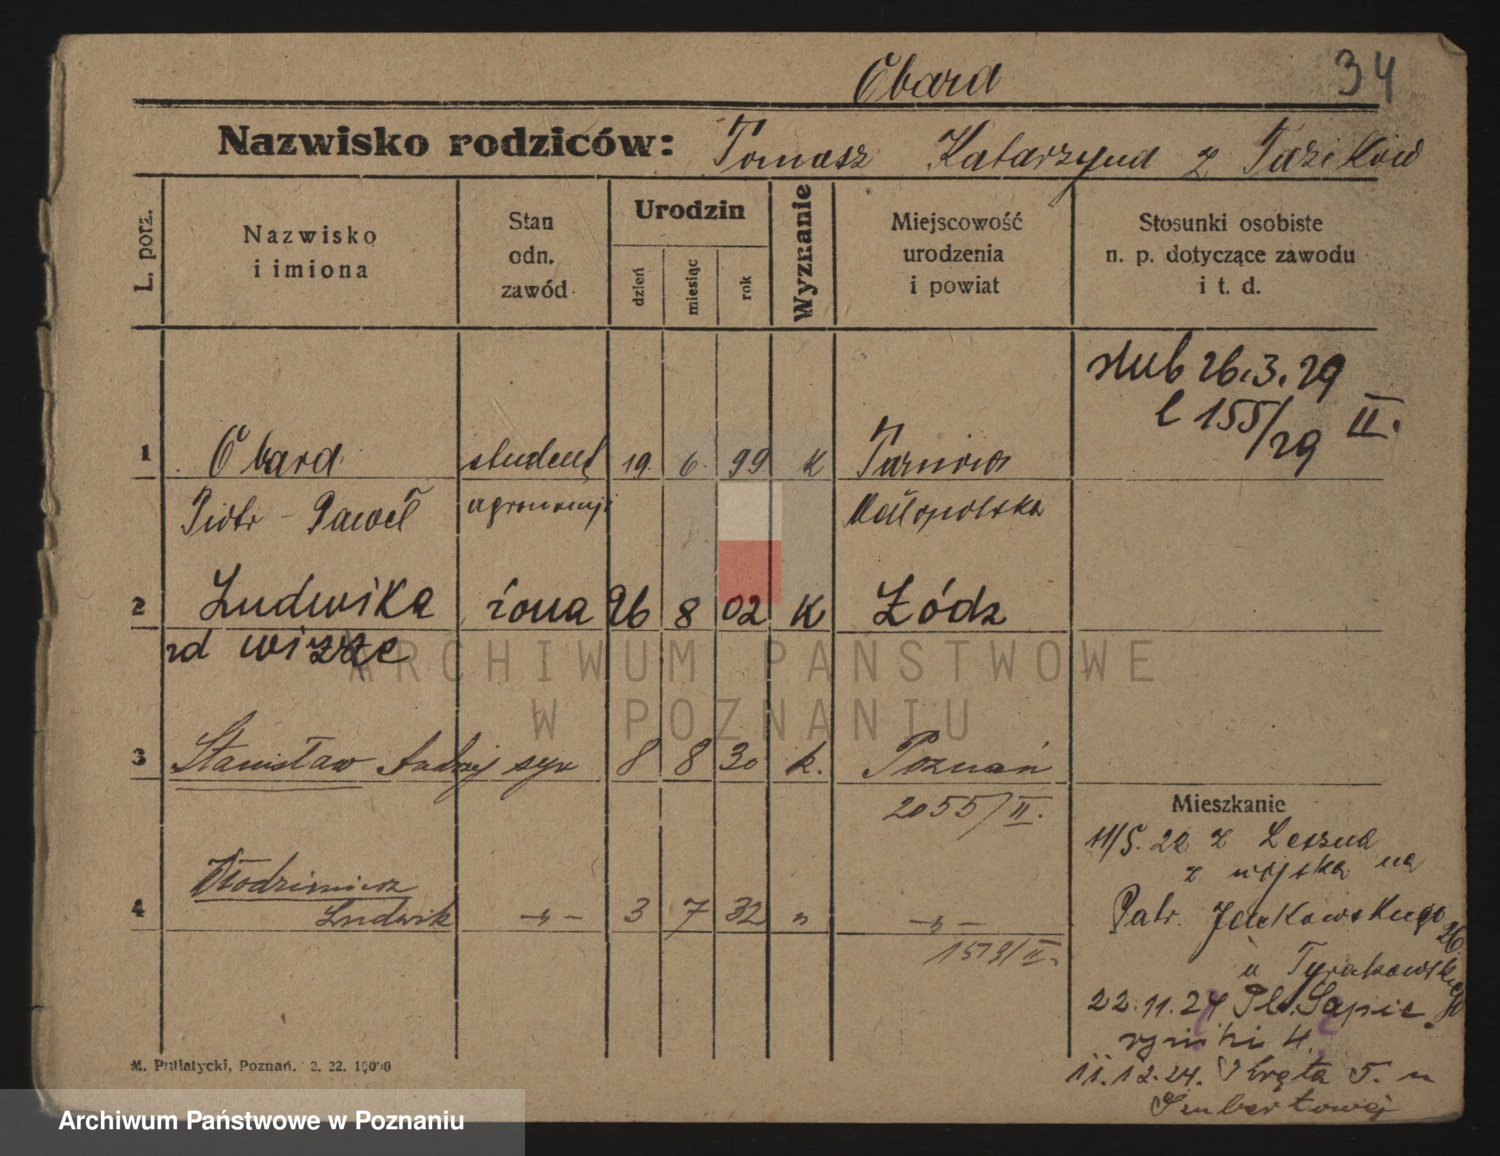 Obard
34
Nazwisko rodziców: Tomasz Katarzyna z
L. porz.
Nazwisko i imiona
Stan odn. zawód
Urodzin
dzień
miesiąc
rok
Wyznanie
Miejscowość urodzenia i powiat
Stosunki osobiste n. p. dotyczące zawodu i t. d.
ślub 26.3.29
l 155/29 II.
1 Obard student 19. 6. 99 K Tarnów
Piotr - Paweł agronomji Małopolska
2 Ludwika żona 26 8 02 K Łódz
zd
3 Stanisław Andrzej syn 8 8 30 k. Poznań
2055/II.
Mieszkanie
11/5. 22 z Leszna
z wojska na
4 Włodzimierz
Ludwik -„- 3 7 32 „ -„-
1579/II.
Patr. Jackowskiego 26.
u Tyrakowskiego
22.11.24 Pl. Sapie
żyński 4.
11.12.24. Kręta 5. u
M. Putiatycki, Poznań. 2. 22. 10000
ARCHIWUM PAŃSTWOWE
W POZNANIU
Archiwum Państwowe w Poznaniu